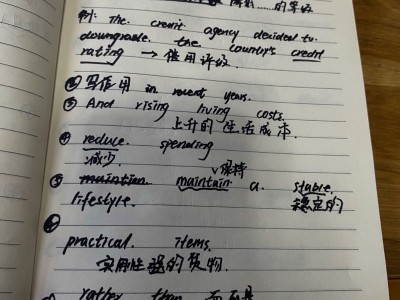 降级……的等级
例: The credit agency decided to
downgrade the country's credit
rating → 信用评级.
② 写作用 in recent years.
③ And rising living costs.
上升的 生活成本.
④ reduce spending
减少.
∨保持
⑤ maintian maintain a stable
lifestyle. 稳定的
practical items.
实用性 的货物.
rather than 而不是